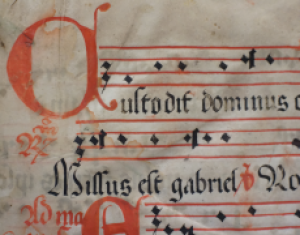 Custodit dominus o
Missus est gabriel
Ad ma